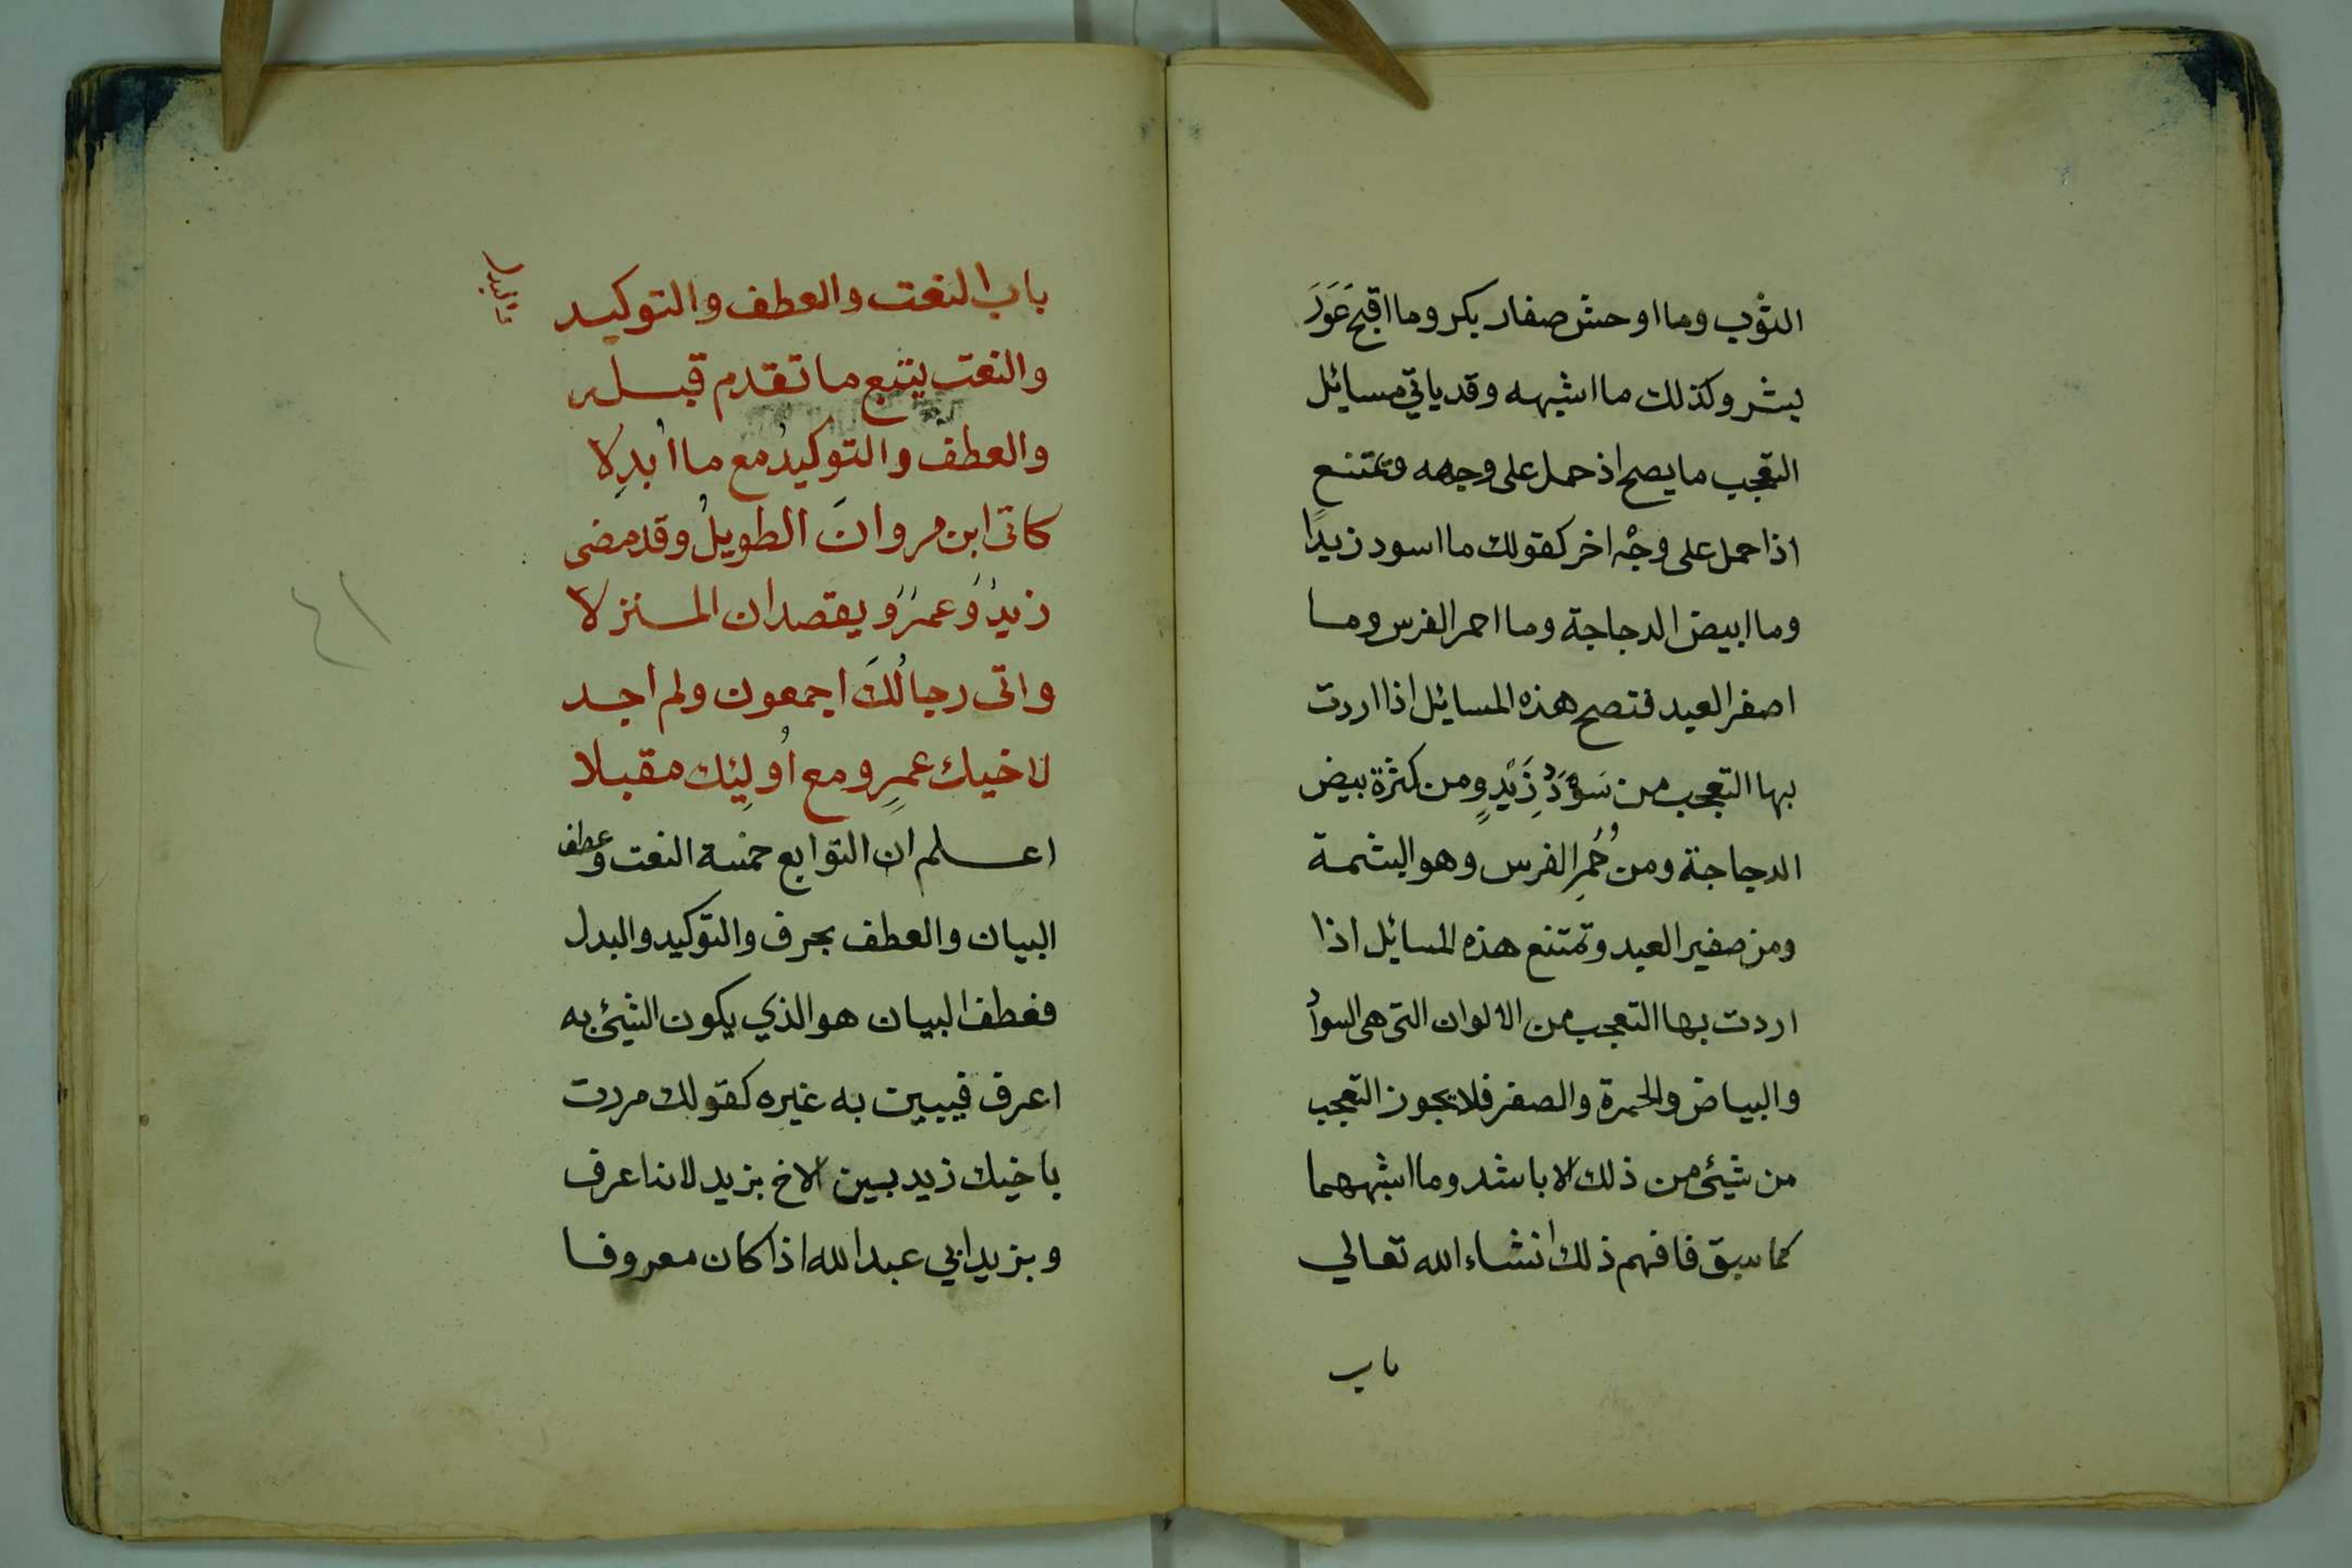 الثوب وما اوحش صفار بكر وما اقبح عَوَرَ
بشر وكذلك ما اشبهه وقد ياتي مسائل
التعجب ما يصح اذ حمل على وجهه وتمتنع
اذا حمل على وجْه اخر كقولك ما اسود زيدًا
وما ابيض الدجاجة وما احمر الفرس وما
اصفر العيد فتصح هذه المسائل اذا اردت
بها التعجب من سَوْدَدِ زَيْدٍ ومن كثرة بيض
الدجاجة ومن حُمَرِ الفرس وهو البشمة
ومن صفير العيد وتمتنع هذه المسائل اذا
اردت بها التعجب من الالوان التى هى السواد
والبياض والحمرة والصفر فلا يجوز التعجب
من شيئ من ذلك الا باشد وما اشبههما
كما سبق فافهم ذلك انشاء الله تعالي
باب
باب النعت والعطف والتوكيد
والبدل
والنعت يتبع ما تقدم قبله
والعطفُ والتوكيدُ مع ما اُبدِلا
كاتى ابن مروانَ الطويلُ وقد مضى
زيدٌ وَعمرٌو يقصدان المنزلا
واتى رجالُكَ اجمعون ولم اجد
لاخيك عمرٍو مع اُولئِك مقبلا
اعلم ان التوابع خمسة النعت وعطف
البيان والعطف بحرف والتوكيد والبدل
فعطف البيان هو الذي يكون الشيئ به
اعرف فيبين به غيره كقولك مررت
باخيك زيد بين الاخ بزيد لانه اعرف
وبزيد ابي عبد الله اذا كان معروفا
٤١